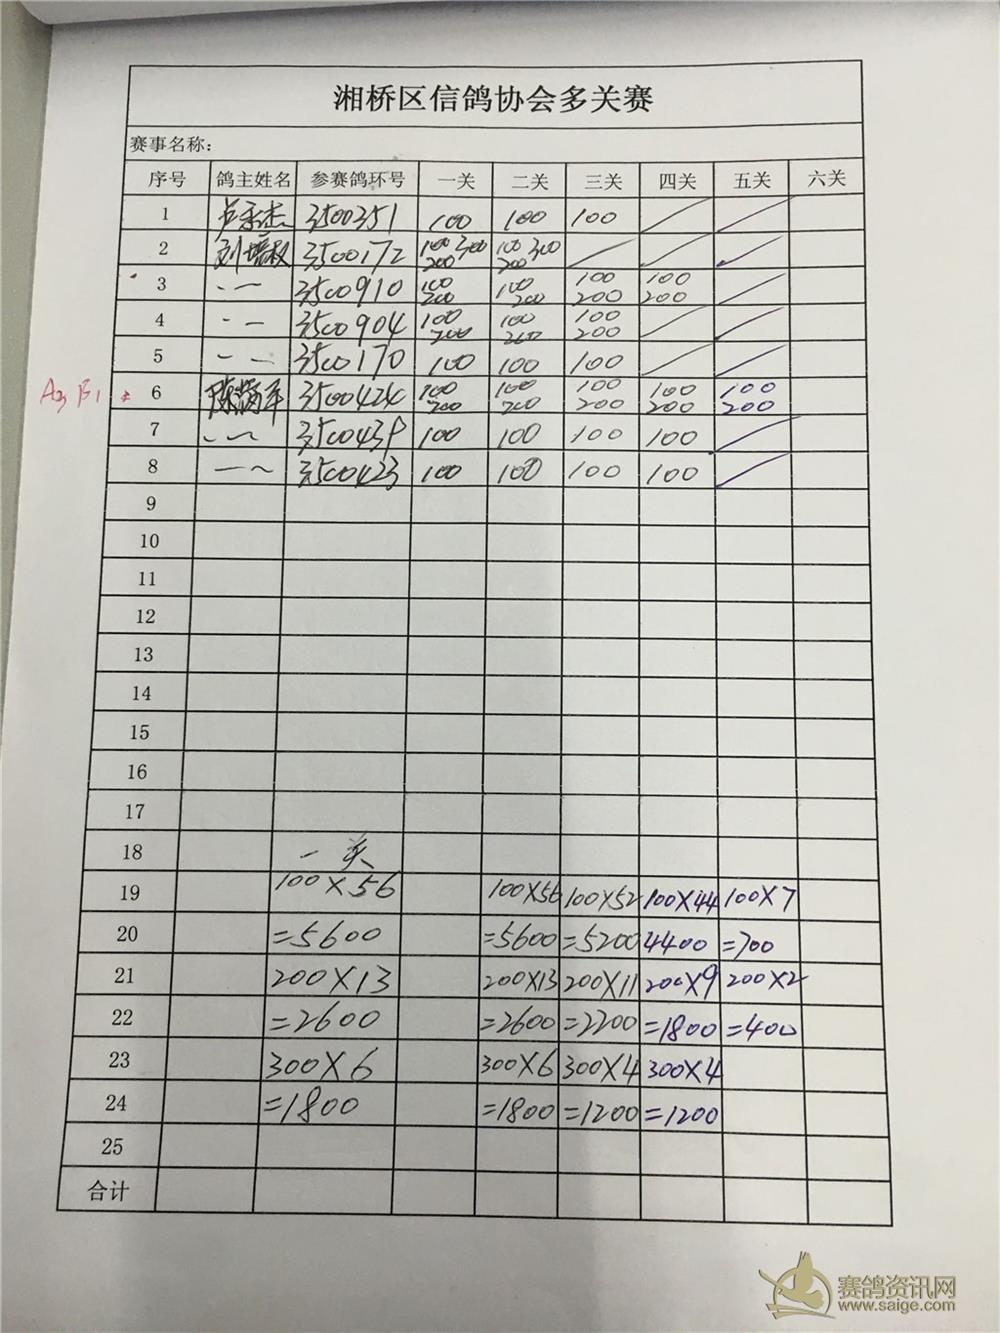 湘桥区信鸽协会多关赛
赛事名称：
序号 鸽主姓名 参赛鸽环号 一关 二关 三关 四关 五关 六关
1 3500351 100 100 100
2 3500172 100 300 200 100 300 200
3 3500910 100 200 100 200 100 200 100 200
4 3500904 100 200 100 200 100 200
5 3500170 100 100 100
6 3500424 100 200 100 200 100 200 100 200 100 200
7 100 100 100 100
8 3500423 100 100 100 100
9
10
11
12
13
14
15
16
17
18 一关
19 100×56 100×56 100×52 100×44 100×7
20 =5600 =5600 =5200 4400 =700
21 200×13 200×13 200×11 200×9 200×2
22 =2600 =2600 =2200 =1800 =400
23 300×6 300×6 300×4 300×4
24 =1800 =1800 =1200 =1200
25
合计
赛鸽资讯网
www.saige.com